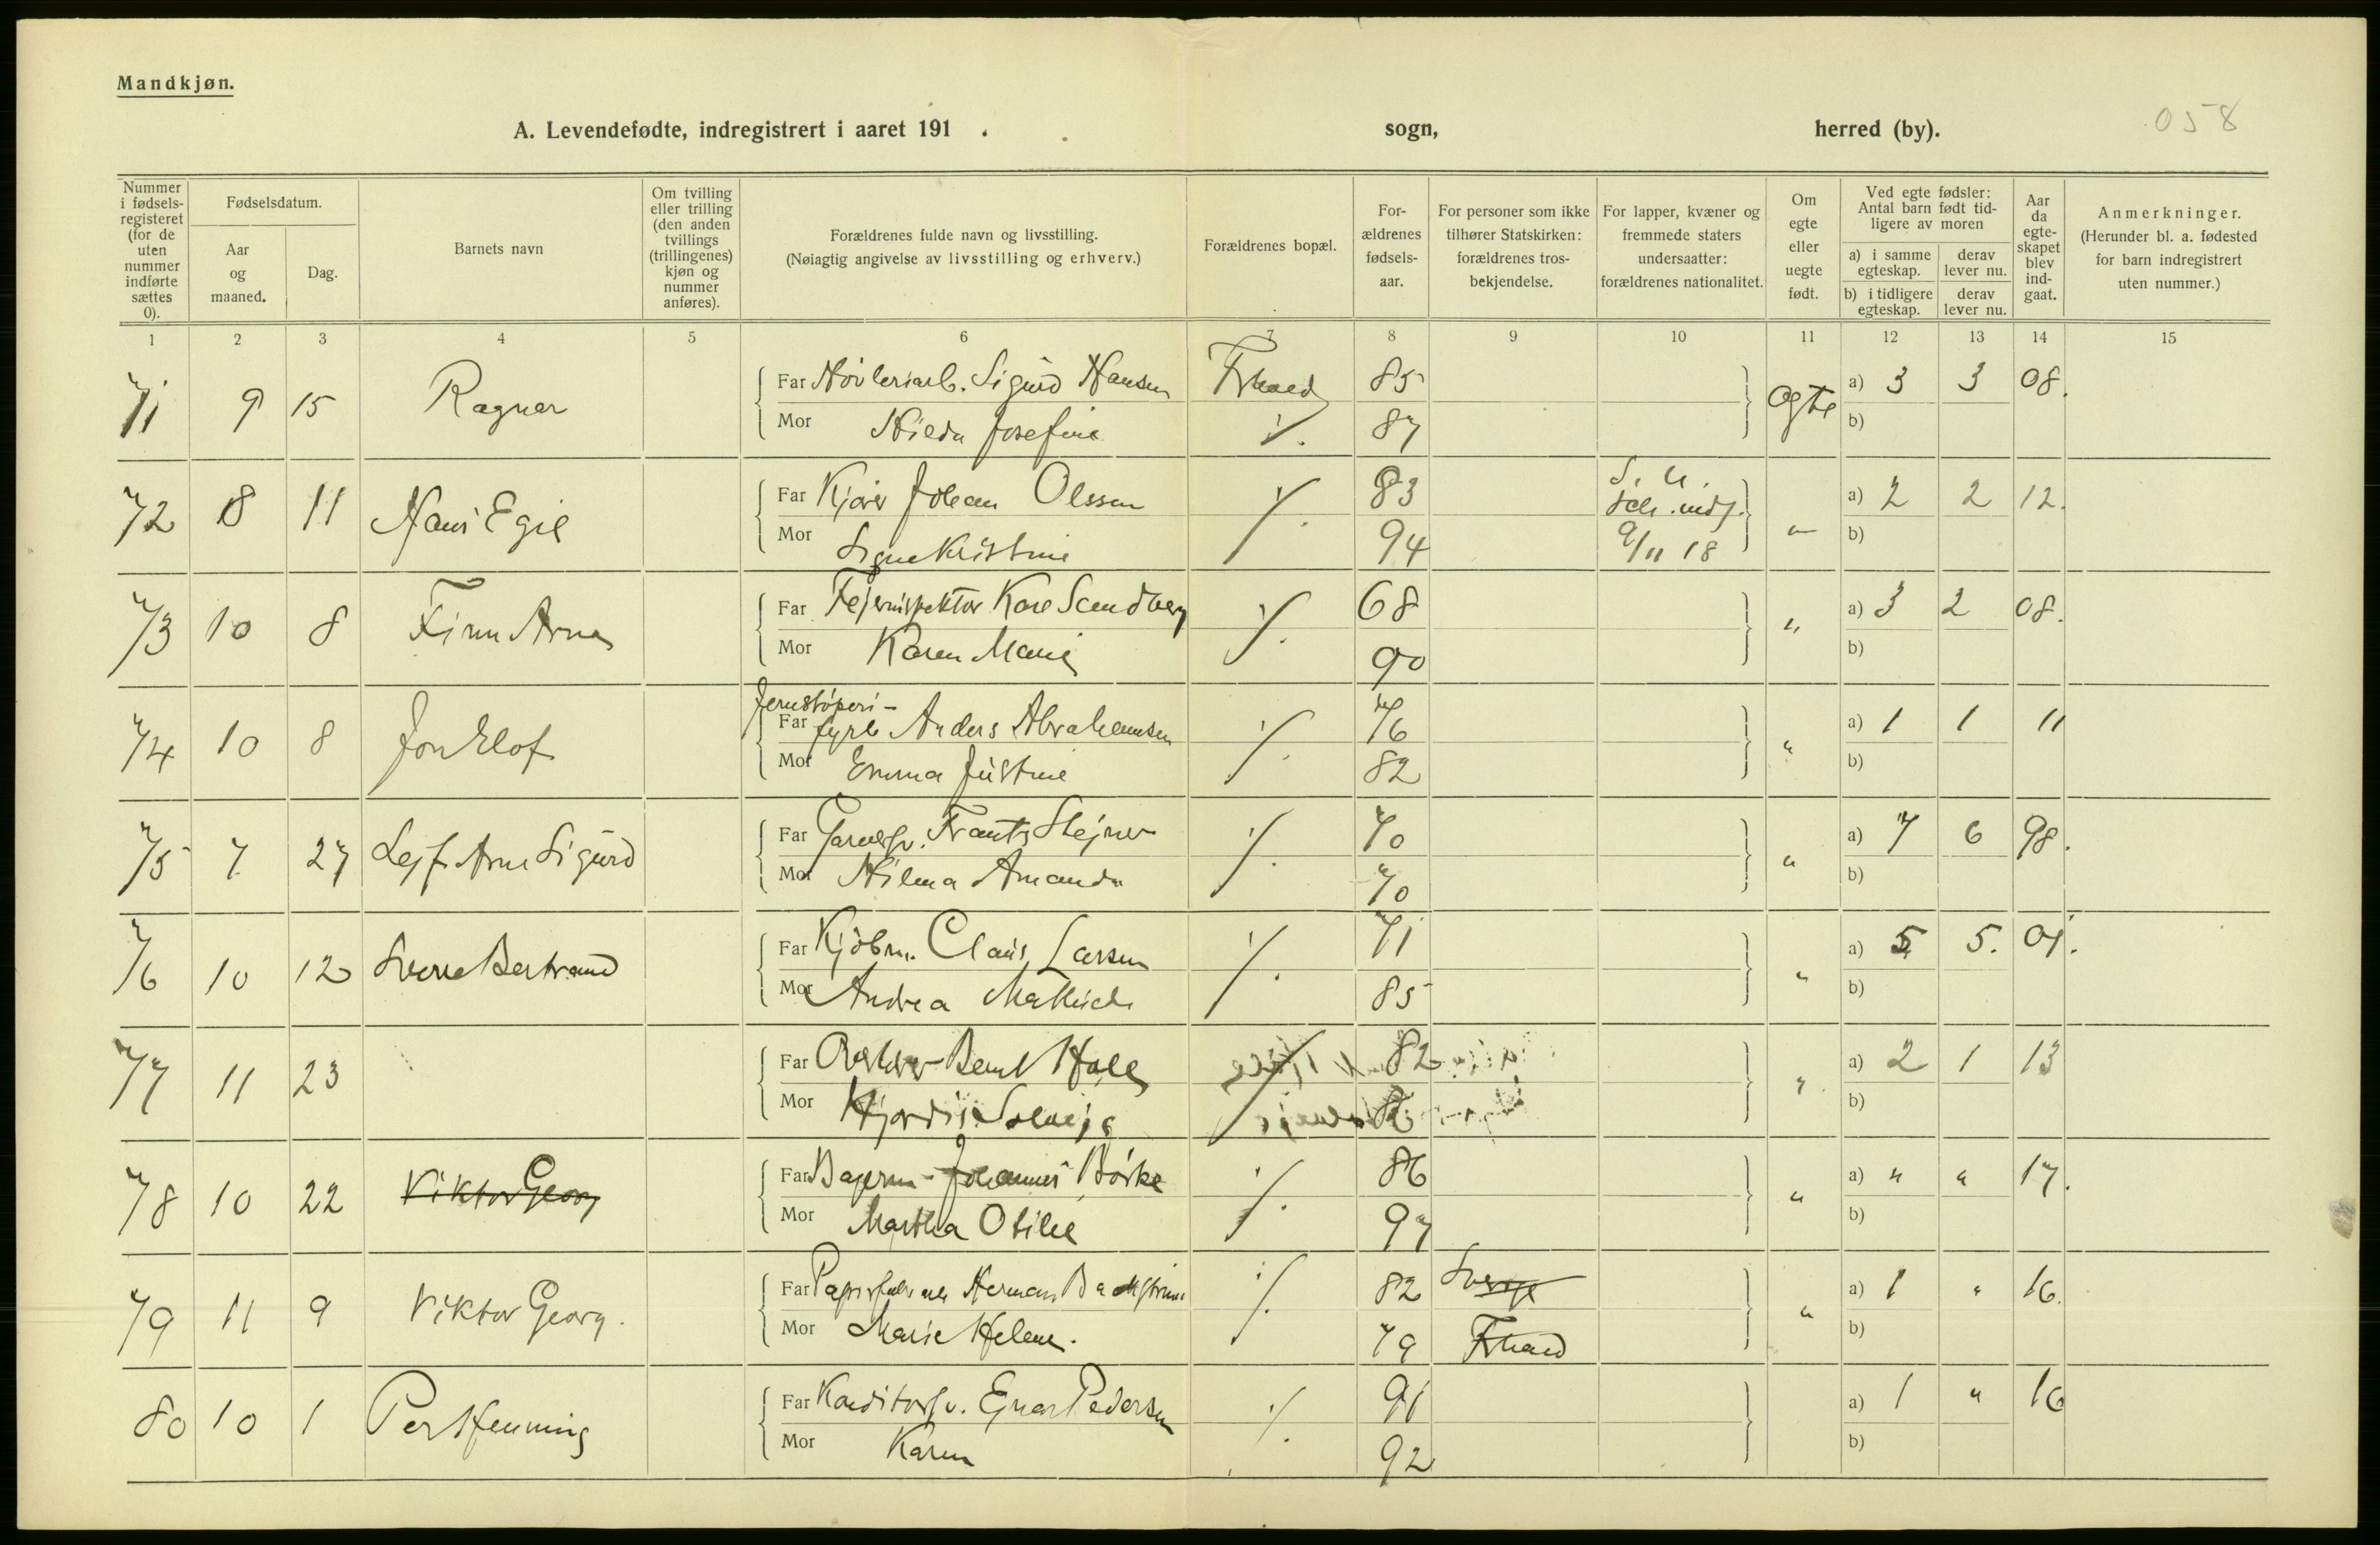 Mandkjøn.
A. Levendefødte, indregistrert i aaret 191 . sogn, herred (by). 058
Nummer i fødsels-registeret (for de uten nummer indførte sættes 0).
Fødselsdatum.
Aar og maaned.
Dag.
Barnets navn
Om tvilling eller trilling (den anden tvillings (trillingenes) kjøn og nummer anføres).
Forældrenes fulde navn og livsstilling.
(Nøiagtig angivelse av livsstilling og erhverv.)
Forældrenes bopæl.
For-ældrenes fødsels-aar.
For personer som ikke tilhører Statskirken: forældrenes tros-bekjendelse.
For lapper, kvæner og fremmede staters undersaatter: forældrenes nationalitet.
Om egte eller uegte født.
Ved egte fødsler: Antal barn født tid-ligere av moren
a) i samme egteskap.
derav lever nu.
b) i tidligere egteskap.
derav lever nu.
Aar da egte-skapet blev ind-gaat.
Anmerkninger.
(Herunder bl. a. fødested for barn indregistrert uten nummer.)
1 2 3 4 5 6 7 8 9 10 11 12 13 14 15
71 9 15 Ragnar Far Høvleriarb. Sigurd Hansen Frhald 85 egte a) 3 3 08.
Mor Hilda Josefine 87 b)
72 8 11 Hans Egil Far Johan Olssen 83 a) 2 2 12.
Mor Signe Kristine 94 9/11 18 b)
73 10 8 Finn Arne Far Fejerinspektør Kare Sandberg 68 " a) 3 2 08.
Mor Karen Marie 90 b)
74 10 8 Jon Elof Jernstøperi-
Far fyrb Anders Abrahamsen 76 " a) 1 1 11
Mor Emma Justine 82 b)
75 7 27 Lejf Arne Sigurd Far Garversv. Frantz Stejner 70 " a) 7 6 98.
Mor Hilma Amanda 70 b)
76 10 12 Sverre Bertrand Far Kjøbm. Claus Larsen 71 " a) 5 5. 01.
Mor Andrea Mathilde 85 b)
77 11 23 Far Bent Hale 82 " a) 2 1 13
Mor Hjordis Solveig b)
78 10 22 Viktor Georg Far Bagerm. Johannes Børke 86 " a) " " 17.
Mor Martha Otilie 97 b)
79 11 9 Viktor Georg. Far Herman Backstrøm 82 Sverge " a) 1 " 16.
Mor Marie Helene. 79 Frhald b)
80 10 1 Per Henning Far Konditorsv. Ejnar Pedersen 91 a) 1 " 16
Mor Karen 92 b)